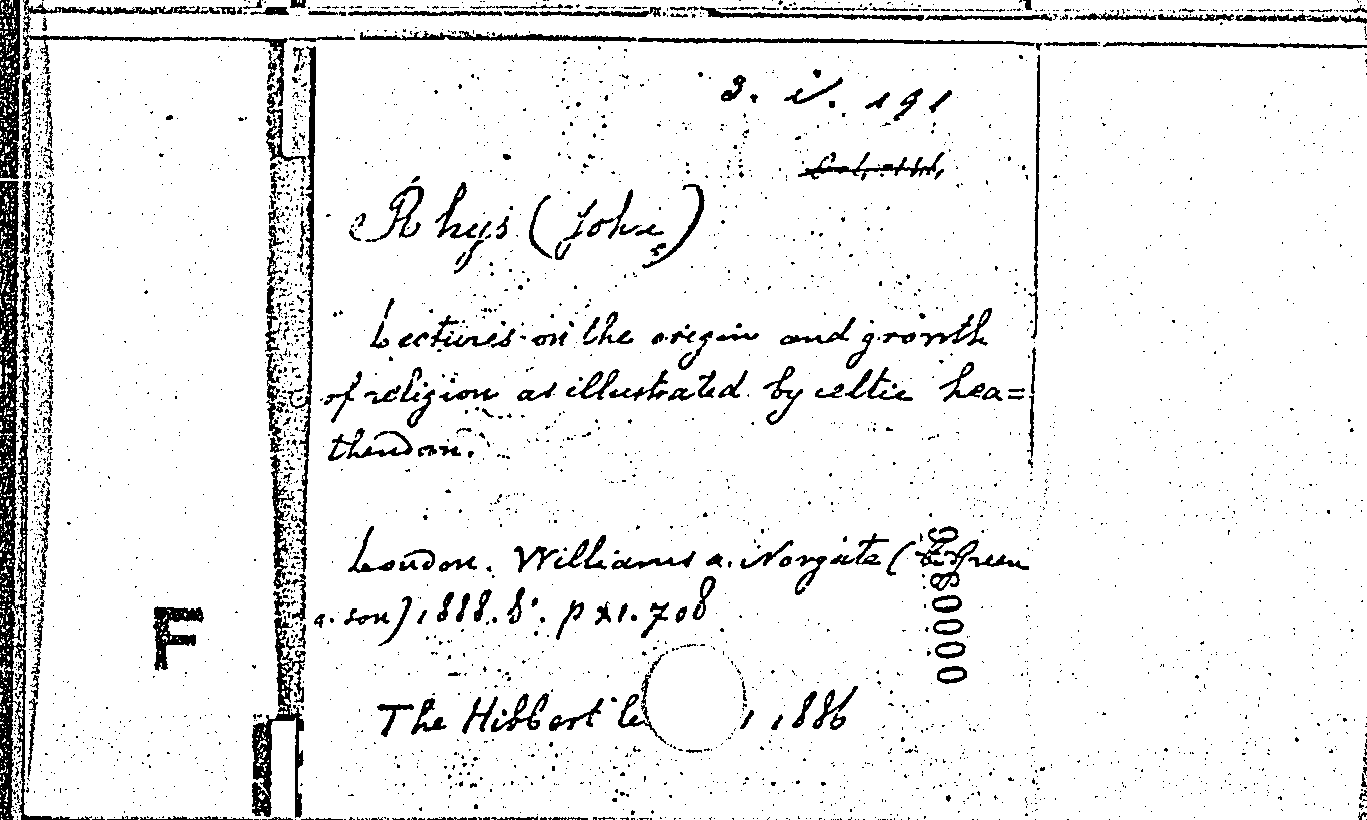 3. i. 191
Rhys (John)
Lectures on the origin and growth
of religion as illustrated by celtic hea=
thendom.
London. Williams a. Norgate ( Green
a. son) 1888. 8°. p XI. 708
The Hibbert le , 1886
F